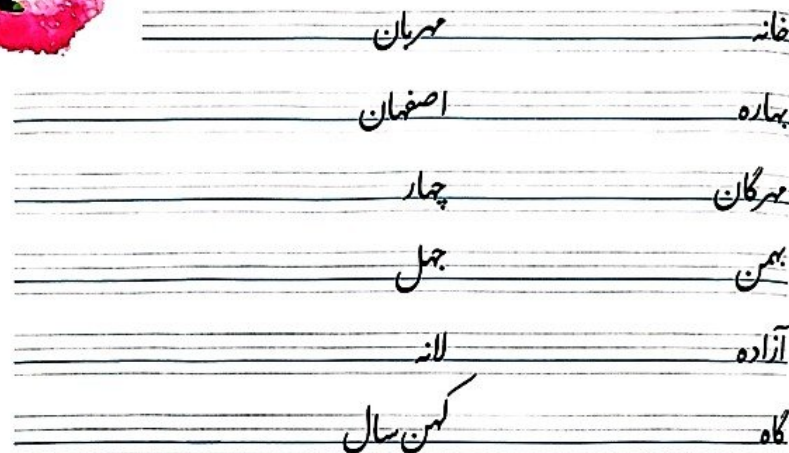 خانه مهربان
بهاره اصفهان
مهرگان چهار
بهمن جهل
آزاده لانه
گاه کهن سال